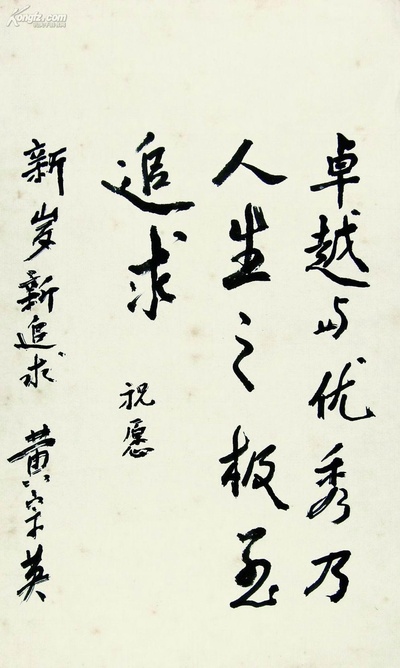 Kongfz.com
卓越与优秀乃
人生之极
追求
祝愿
新岁新追求
黄宗英